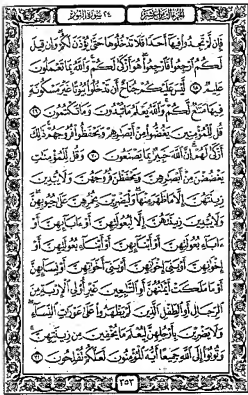 الجزء الثامن عشر ٢٤ سورة النور
فَإِن لَّمْ تَجِدُوا۟ فِيهَآ أَحَدًا فَلَا تَدْخُلُوهَا حَتَّىٰ يُؤْذَنَ لَكُمْ وَإِن قِيلَ
لَكُمُ ٱرْجِعُوا۟ فَٱرْجِعُوا۟ هُوَ أَزْكَىٰ لَكُمْ وَٱللَّهُ بِمَا تَعْمَلُونَ
عَلِيمٌ ٢٨ لَّيْسَ عَلَيْكُمْ جُنَاحٌ أَن تَدْخُلُوا۟ بُيُوتًا غَيْرَ مَسْكُونَةٍ
فِيهَا مَتَٰعٌ لَّكُمْ وَٱللَّهُ يَعْلَمُ مَا تُبْدُونَ وَمَا تَكْتُمُونَ ٢٩
قُل لِّلْمُؤْمِنِينَ يَغُضُّوا۟ مِنْ أَبْصَٰرِهِمْ وَيَحْفَظُوا۟ فُرُوجَهُمْ ذَٰلِكَ
أَزْكَىٰ لَهُمْ إِنَّ ٱللَّهَ خَبِيرٌۢ بِمَا يَصْنَعُونَ ٣٠ وَقُل لِّلْمُؤْمِنَٰتِ
يَغْضُضْنَ مِنْ أَبْصَٰرِهِنَّ وَيَحْفَظْنَ فُرُوجَهُنَّ وَلَا يُبْدِينَ
زِينَتَهُنَّ إِلَّا مَا ظَهَرَ مِنْهَا وَلْيَضْرِبْنَ بِخُمُرِهِنَّ عَلَىٰ جُيُوبِهِنَّ
وَلَا يُبْدِينَ زِينَتَهُنَّ إِلَّا لِبُعُولَتِهِنَّ أَوْ ءَابَآئِهِنَّ أَوْ
ءَابَآءِ بُعُولَتِهِنَّ أَوْ أَبْنَآئِهِنَّ أَوْ أَبْنَآءِ بُعُولَتِهِنَّ أَوْ
إِخْوَٰنِهِنَّ أَوْ بَنِىٓ إِخْوَٰنِهِنَّ أَوْ بَنِىٓ أَخَوَٰتِهِنَّ أَوْ نِسَآئِهِنَّ
أَوْ مَا مَلَكَتْ أَيْمَٰنُهُنَّ أَوِ ٱلتَّٰبِعِينَ غَيْرِ أُو۟لِى ٱلْإِرْبَةِ مِنَ
ٱلرِّجَالِ أَوِ ٱلطِّفْلِ ٱلَّذِينَ لَمْ يَظْهَرُوا۟ عَلَىٰ عَوْرَٰتِ ٱلنِّسَآءِ
وَلَا يَضْرِبْنَ بِأَرْجُلِهِنَّ لِيُعْلَمَ مَا يُخْفِينَ مِن زِينَتِهِنَّ
وَتُوبُوٓا۟ إِلَى ٱللَّهِ جَمِيعًا أَيُّهَ ٱلْمُؤْمِنُونَ لَعَلَّكُمْ تُفْلِحُونَ ٣١
٣٥٣